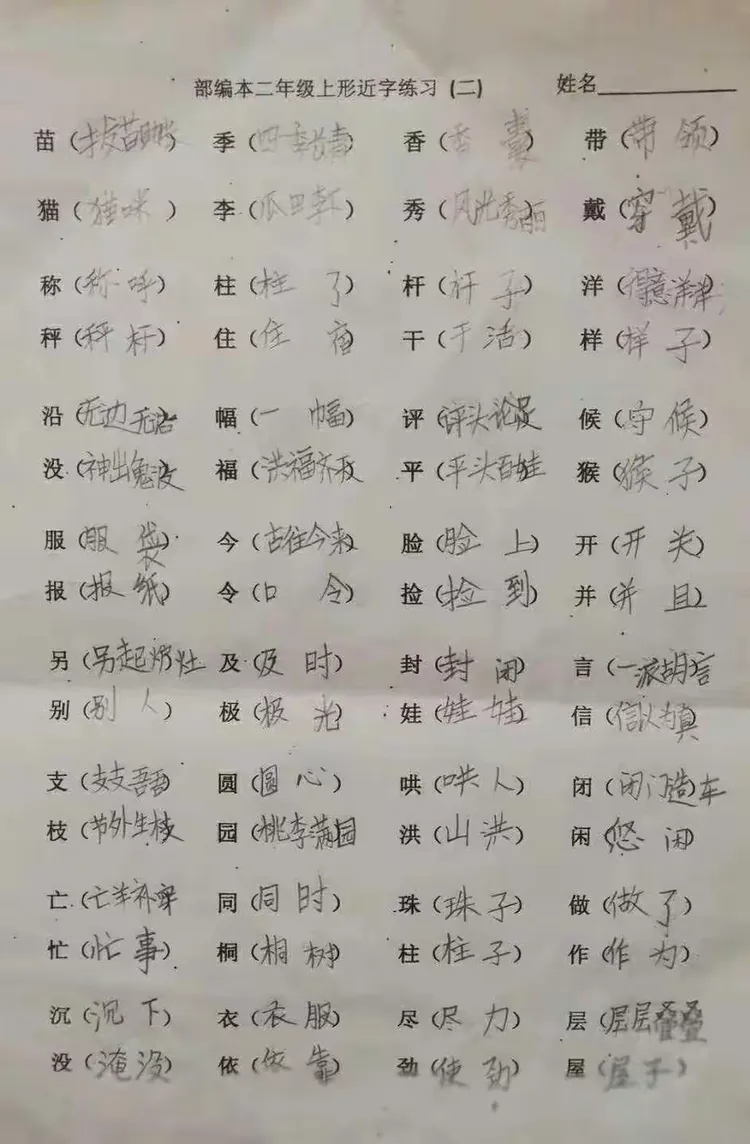 部编本二年级上形近字练习 (二) 姓名
苗(拔苗助长) 季(四季长青) 香(香囊) 带(带领)
猫(猫咪) 李(瓜田李下) 秀(风光秀丽) 戴(穿戴)
称(称呼) 柱(柱了) 杆(杆子) 洋(得意洋洋)
秤(秤杆) 住(住宿) 干(干活) 样(样子)
沿(无边无沿) 幅(一幅) 评(评头论足) 候(守候)
没(神出鬼没) 福(洪福齐天) 平(平头百姓) 猴(猴子)
服(服袋) 今(古往今来) 脸(脸上) 开(开关)
报(报纸) 令(口令) 捡(捡到) 并(并且)
另(另起炉灶) 及(及时) 封(封闭) 言(一派胡言)
别(别人) 极(极光) 娃(娃娃) 信(信以为真)
支(支支吾吾) 圆(圆心) 哄(哄人) 闭(闭门造车)
枝(节外生枝) 园(桃李满园) 洪(山洪) 闲(悠闲)
亡(亡羊补牢) 同(同时) 珠(珠子) 做(做了)
忙(忙事) 桐(桐树) 柱(柱子) 作(作为)
沉(沉下) 衣(衣服) 尽(尽力) 层(层层叠叠)
没(淹没) 依(依靠) 劲(使劲) 屋(屋子)